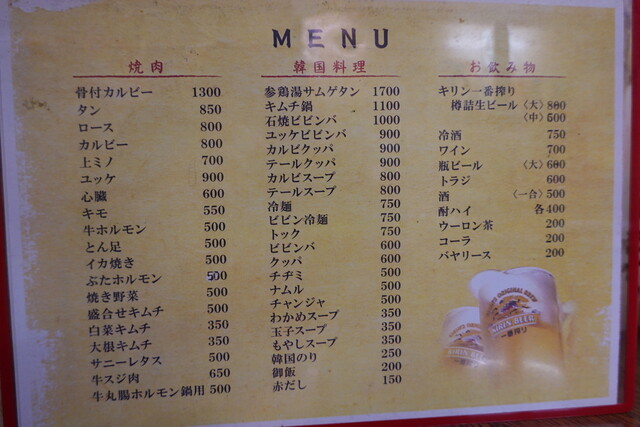 MENU
焼肉
骨付カルビー 1300
タン 850
ロース 800
カルビー 800
上ミノ 700
ユッケ 900
心臓 600
キモ 550
牛ホルモン 500
とん足 500
イカ焼き 500
ぶたホルモン 500
焼き野菜 500
盛合せキムチ 500
白菜キムチ 350
大根キムチ 350
サニーレタス 500
牛スジ肉 650
牛丸腸ホルモン鍋用 500
韓国料理
参鶏湯サムゲタン 1700
キムチ鍋 1100
石焼ビビンバ 1000
ユッケビビンバ 900
カルビクッパ 900
テールクッパ 900
カルビスープ 800
テールスープ 800
冷麺 750
ビビン冷麺 750
トック 750
ビビンバ 600
クッパ 600
チヂミ 500
ナムル 500
チャンジャ 500
わかめスープ 350
玉子スープ 350
もやしスープ 350
韓国のり 250
御飯 200
赤だし 150
お飲み物
キリン一番搾り
樽詰生ビール〈大〉800
〈中〉500
冷酒 750
ワイン 700
瓶ビール 〈大〉600
トラジ 600
酒 〈一合〉500
酎ハイ 各400
ウーロン茶 200
コーラ 200
バヤリース 200
KIRIN BEER
一番搾り